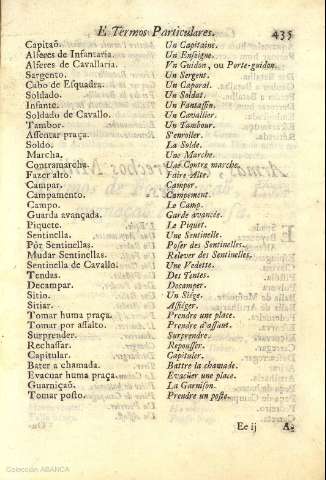 E Termos Particulares. 435
Capitaõ. Un Capitaine.
Alferes de Infantaria. Un Enseigne.
Alferes de Cavallaria. Vn Guidon, ou Porte-guidon.
Sargento. Un Sergent.
Cabo de Esquadra. Un Caporal.
Soldado. Un Soldat.
Infante. Un Fantassin.
Soldado de Cavallo. Un Cavallier.
Tambor. Un Tambour.
Assentar praça. S'enroller.
Soldo. La Solde.
Marcha. Une Marche.
Contramarcha. Une Contre marche.
Fazer alto. Faire Alte.
Campar. Camper.
Campamento. Campement.
Campo. Le Camp.
Guarda avançada. Garde avancée.
Piquete. Le Piquet.
Sentinella. Une Sentinelle.
Pòr Sentinellas. Poser des Sentinelles.
Mudar Sentinellas. Relever des Sentinelles.
Sentinella de Cavallo. Une Vedette.
Tendas. Des Tentes.
Decampar. Decamper.
Sitio. Un Siége.
Sitiar. Assiéger.
Tomar huma praça. Prendre une place.
Tomar por assalto. Prendre d'assaut.
Surprender. Surprendre.
Rechassar. Repousser.
Capitular. Capituler.
Bater a chamada. Battre la chamade.
Evacuar huma praça. Evacüer une place.
Guarniçaõ. La Garnison.
Tomar posto. Prendre un poste.
Ee ij A-
Colección ABANCA